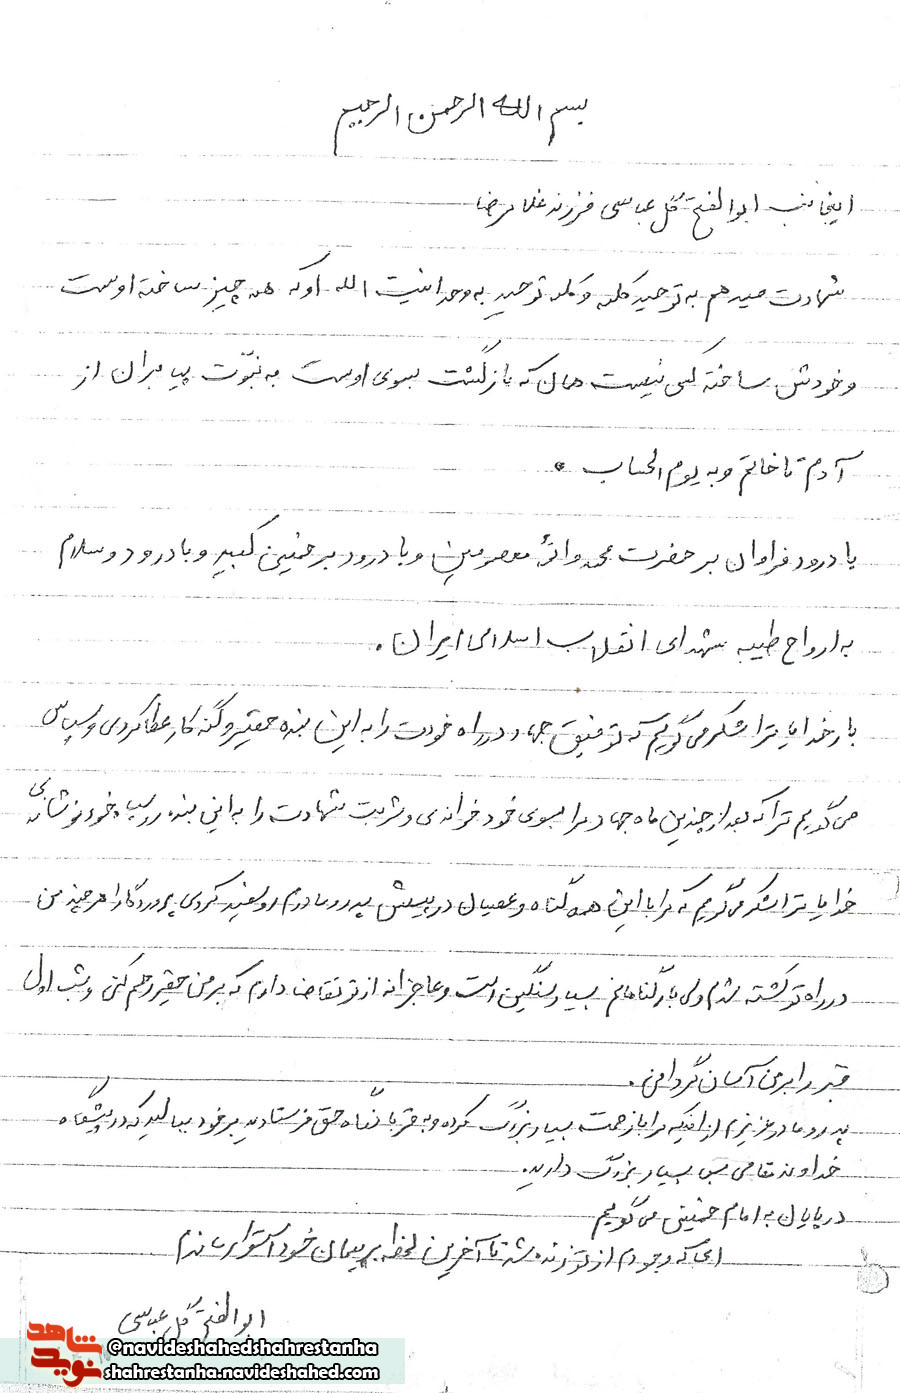 بسم الله الرحمن الرحیم
اینجانب ابوالفتح گل عباسی فرزند غلامرضا
شهادت میدهم به توحید کلمه و کلمه توحید به وحدانیت الله او که همه چیز ساخته اوست
و خودش ساخته کسی نیست همان که بازگشت بسوی اوست به نبّوت پیامبران از
آدم تا خاتم و به یوم الحساب .
با درود فراوان بر حضرت محمد و ائمهٔ معصومین و با درود بر خمینی کبیر و با درود و سلام
به ارواح طیبه شهدای انقلاب اسلامی ایران .
بار خدایا ترا شکر می گویم که توفیق جهاد در راه خودت را به این بنده حقیر و گنه کار عطا کردی و سپاس
می گویم ترا که بعد از چندین ماه جهاد مرا بسوی خود خواندی و شربت شهادت را به این بنده رو سیاه خود نوشاندی
خدایا ترا شکر می گویم که مرا با این همه گناه و عصیان در پیش پدر و مادرم رو سفید کردی پروردگارا هر چند من
در راه تو کشته شدم ولی بار گناهانم بسیار سنگین است و عاجزانه از تو تقاضا دارم که بر من حقیر رحم کنی و شب اول
قبر را بر من آسان گردانی .
پدر و مادر عزیزم از اینکه مرا با زحمت بسیار بزرگ کرده و به قربانگاه حق فرستادید بر خود ببالید که در پیشگاه
خداوند مقامی بس بسیار بزرگ دارید .
در پایان به امام خمینی می گویم
ای که وجودم از تو زنده شد تا آخرین لحظه بر پیمان خود استوار ماندم
ابوالفتح گل عباسی
نوید شاهد
@navideshahedshahrestanha
shahrestanha.navideshahed.com